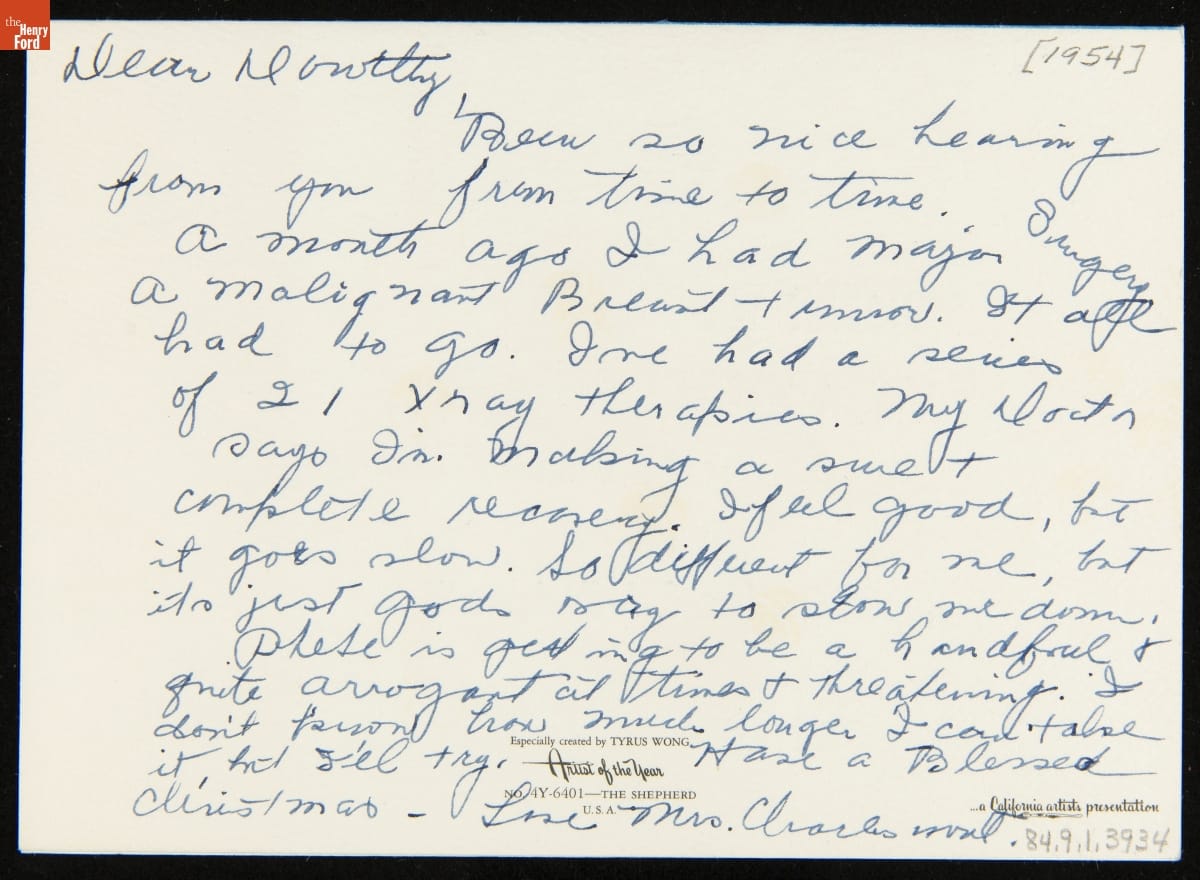 the Henry Ford
[1954]
Dear Dorothy,
Been so nice hearing
from you from time to time.
A month ago I had major Surgery
A malignant Breast tumor. It all
had to go. I've had a series
of 21 Xray therapies. My Doctor
says I'm making a sure &
complete recovery. I feel good, but
it goes slow. So different for me, but
its just Gods way to slow me down.
is getting to be a handful &
quite arrogant at times & threatening. I
don't know how much longer I can take
it, but I'll try. Have a Blessed
Christmas - Love Mrs. Charles
Especially created by TYRUS WONG,
Artist of the Year
NO. 4Y-6401—THE SHEPHERD
U.S.A.
...a California artists presentation
84.9.1.3934